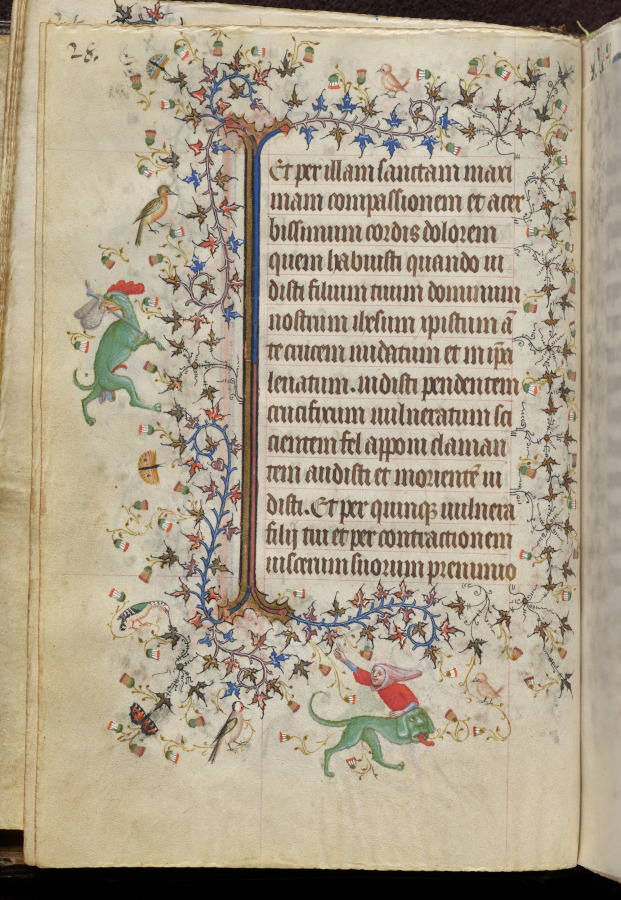 28.
Et per illam sanctam maxi
mam compassionem et acer
bissimum cordis dolorem
quem habuisti quando vi
disti filium tuum dominum
nostrum ihesum xpistum ā
te crucem nudatum et in ip̄a
leuatum. vidisti pendentem
crucifixum vulneratum sci
cientem fel apponi claman
tem audisti et morientē vi
disti. Et per quinqꝫ vulnera
filij tui et per contractionem
viscerum suorum pre nimio